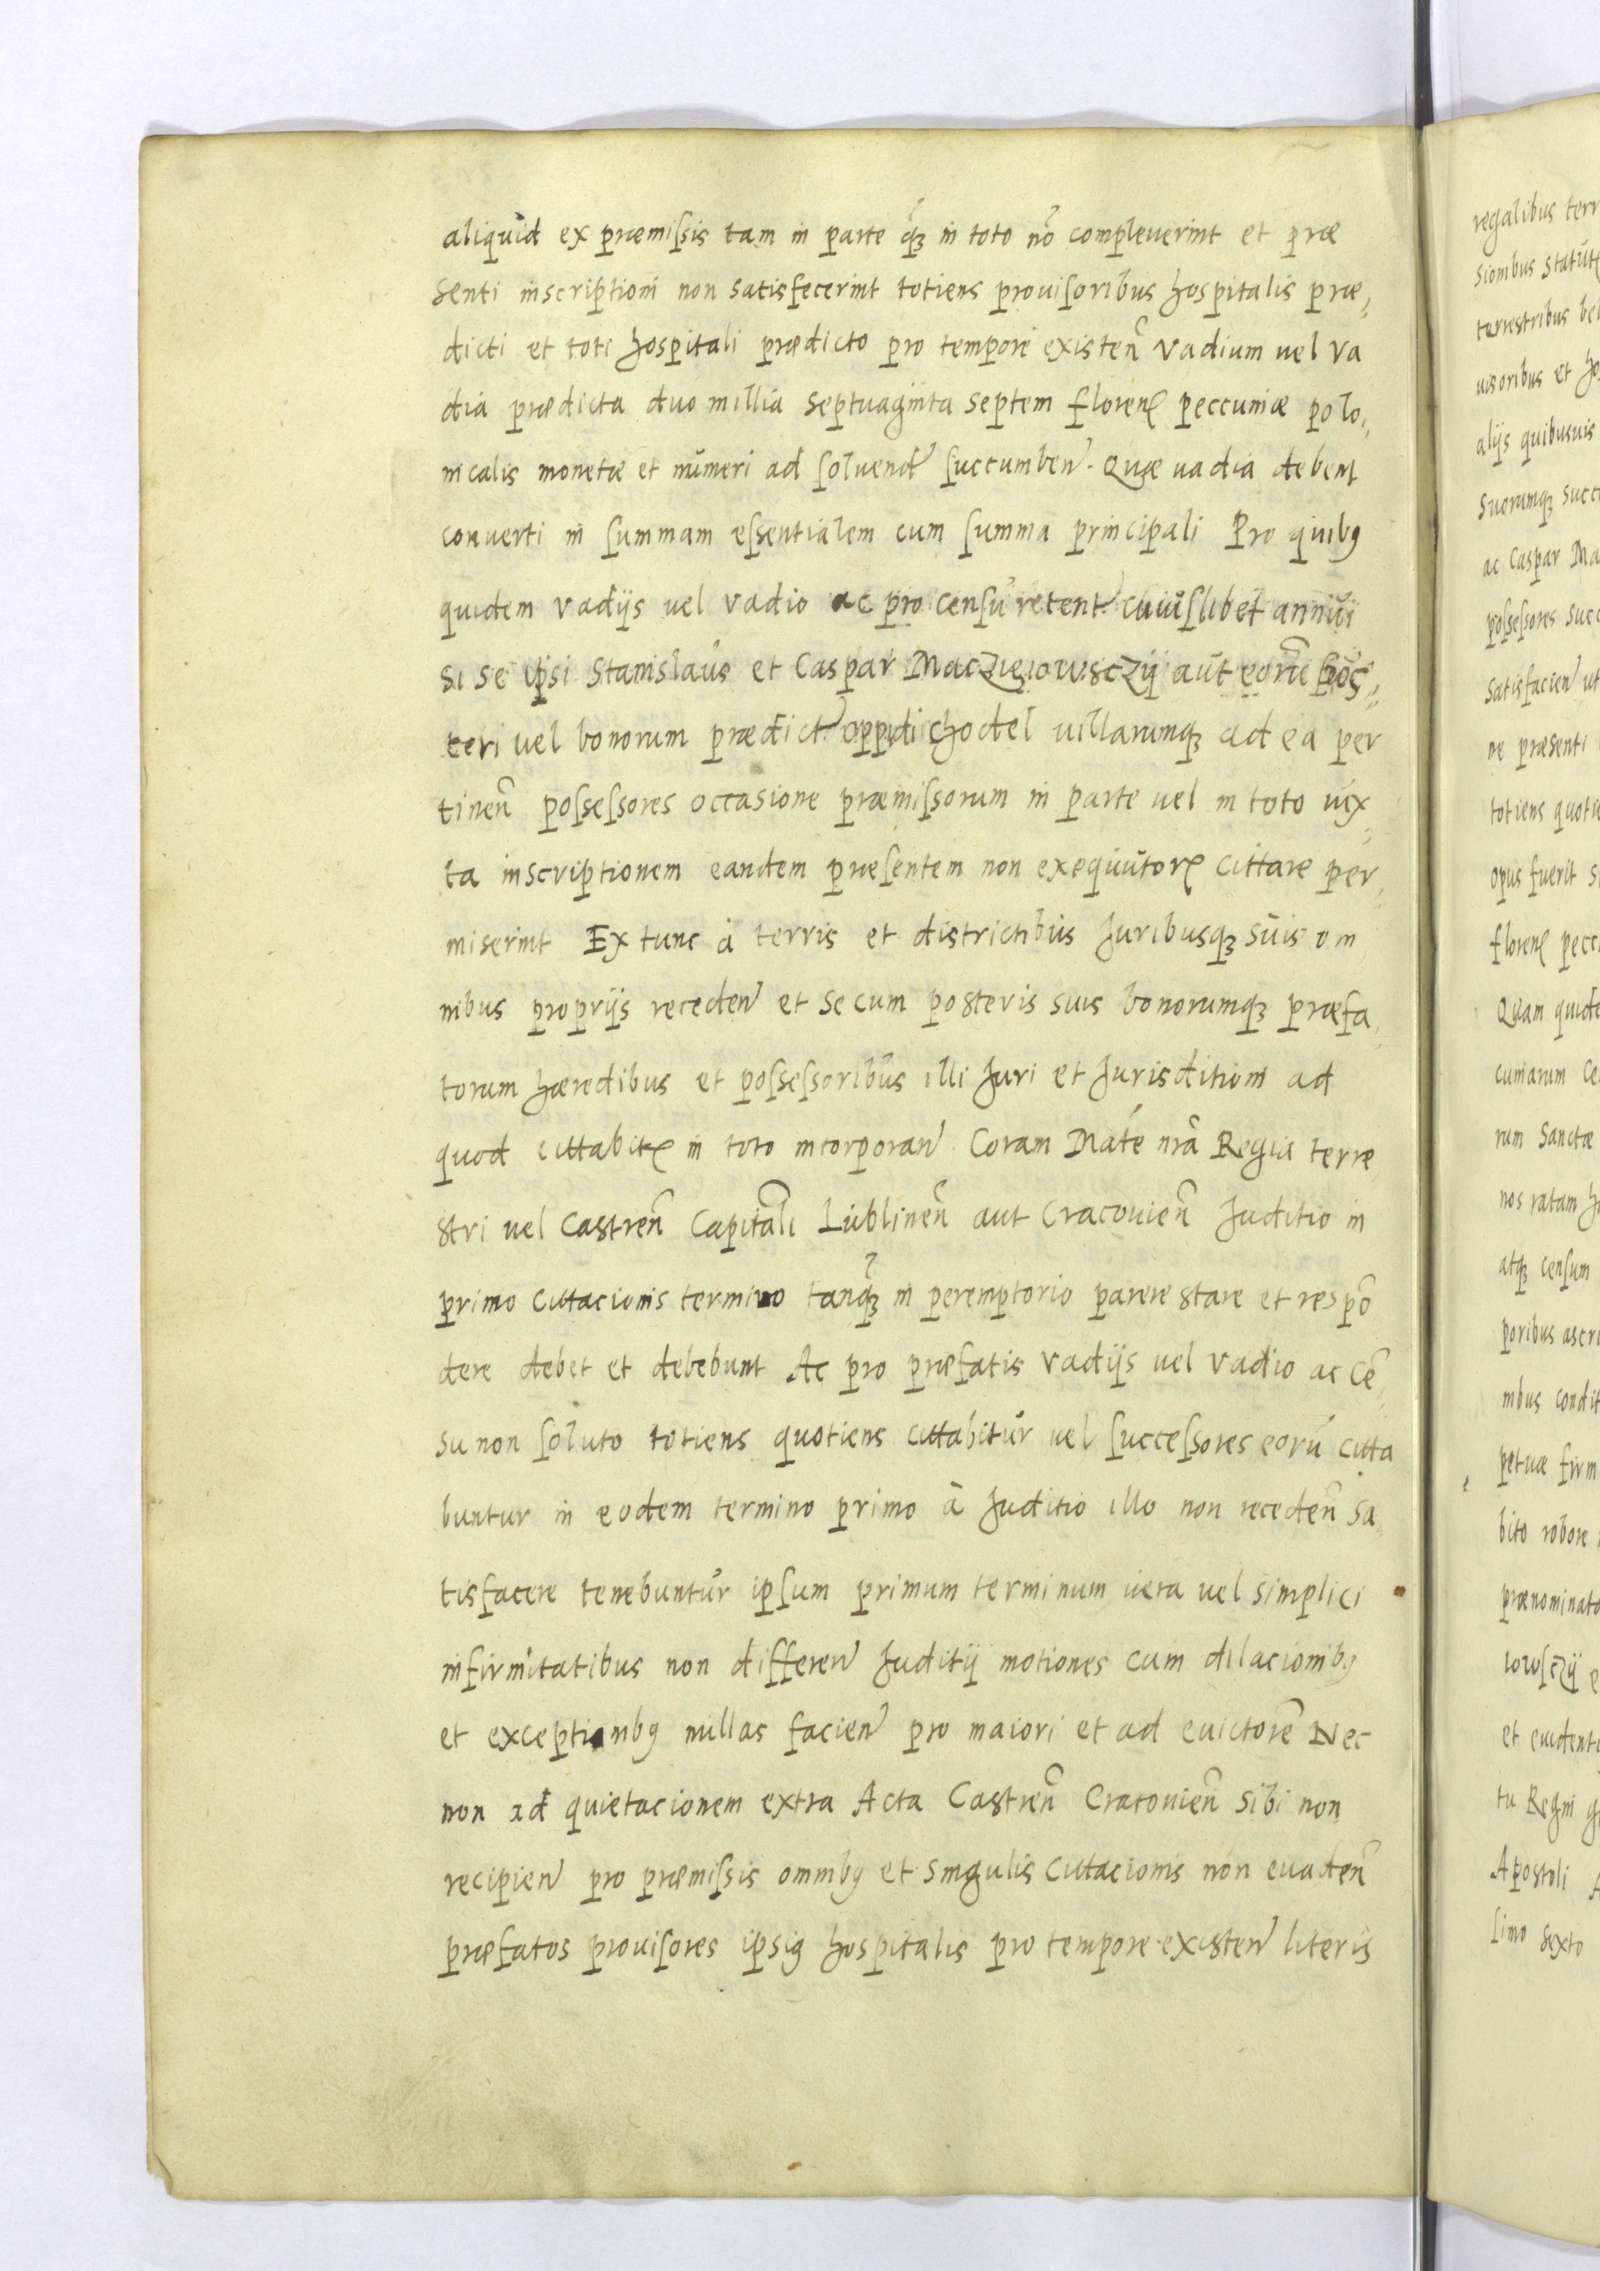 aliquid ex præmiſsis tam in parte q̃ꝫ in toto nõ compleuerint et præ
senti inscriptioni non satisfecerint totiens prouiſoribus hospitalis præ,
dicti et toti hospitali prædicto pro tempore existeñ vadium uel va
dia prædicta duo millia septuaginta septem florenꝭ peccuniæ polo,
nicalis monetæ et numeri ad ſoluend̃ ſuccumbeñ. Quæ uadia debent
conuerti in ſummam eſsentialem cum ſumma principali Pro quibꝰ
quidem vadijs uel vadio ac pro cenſu retent̃ cuiuſlibet annui
si se ipsi Stanislaus et Caspar Maczieiowsczij aut eorũ pos,
teri uel bonorum prædict̃ oppidi chodel uillarumqꝫ ad ea per
tineñ poſseſsores occasione præmiſsorum in parte uel in toto iux,
ta inscriptionem eandem præſentem non exequutorꝭ cittare per,
miserint Ex tunc à terris et districtibus Juribusqꝫ suis om
nibus proprijs recedeñ et se cum posteris suis bonorumqꝫ præfa,
torum hæredibus et poſseſsoribus illi Juri et Jurisditioni ad
quod cittabitꝭ in toto incorporañ Coram Mate nrã Regia terre
stri uel castreñ Capitãli Lublineñ aut Cracouieñ Juditio in
primo cittacionis termino tanq̃ꝫ in peremptorio parere stare et respõ
dere debet et debebunt Ac pro præfatis vadijs uel vadio ac cẽ,
su non ſoluto totiens quotiens cittabitur uel ſucceſsores eorũ citta
buntur in eodem termino primo à Juditio illo non recedeñ sa,
tisfacere tenebuntur ipſum primum terminum uera uel simplici
infirmitatibus non differeñ Juditij motiones cum dilacionibꝰ
et exceptionibꝰ nullas facieñ pro maiori et ad euictorẽ Nec
non ad quietacionem extra Acta Castreñ Cracouieñ sibi non
recipieñ pro præmiſsis omnibꝰ et singulis cittacionis non euadeñ
præfatos prouiſores ipsiꝰ hospitalis pro tempore existeñ literis
regalibus terr
sionibus statutꝭ
terrestribus be
uisoribus et ho
alijs quibusuis
suorumqꝫ succ
ac Caspar Ma
poſseſsores succ
satisfacieñ ut
ne præsenti
totiens quotie
opus fuerit s
florenꝭ pecc
Quam quide
cuniarum ce
rum Sanctæ
nos ratam h
atqꝫ cenſum
poribus ascri
nibus condit
petuæ firm
bito robore
prænominato
iowſczij e
et euident
tu Regni g
Apostoli A
ſimo sexto